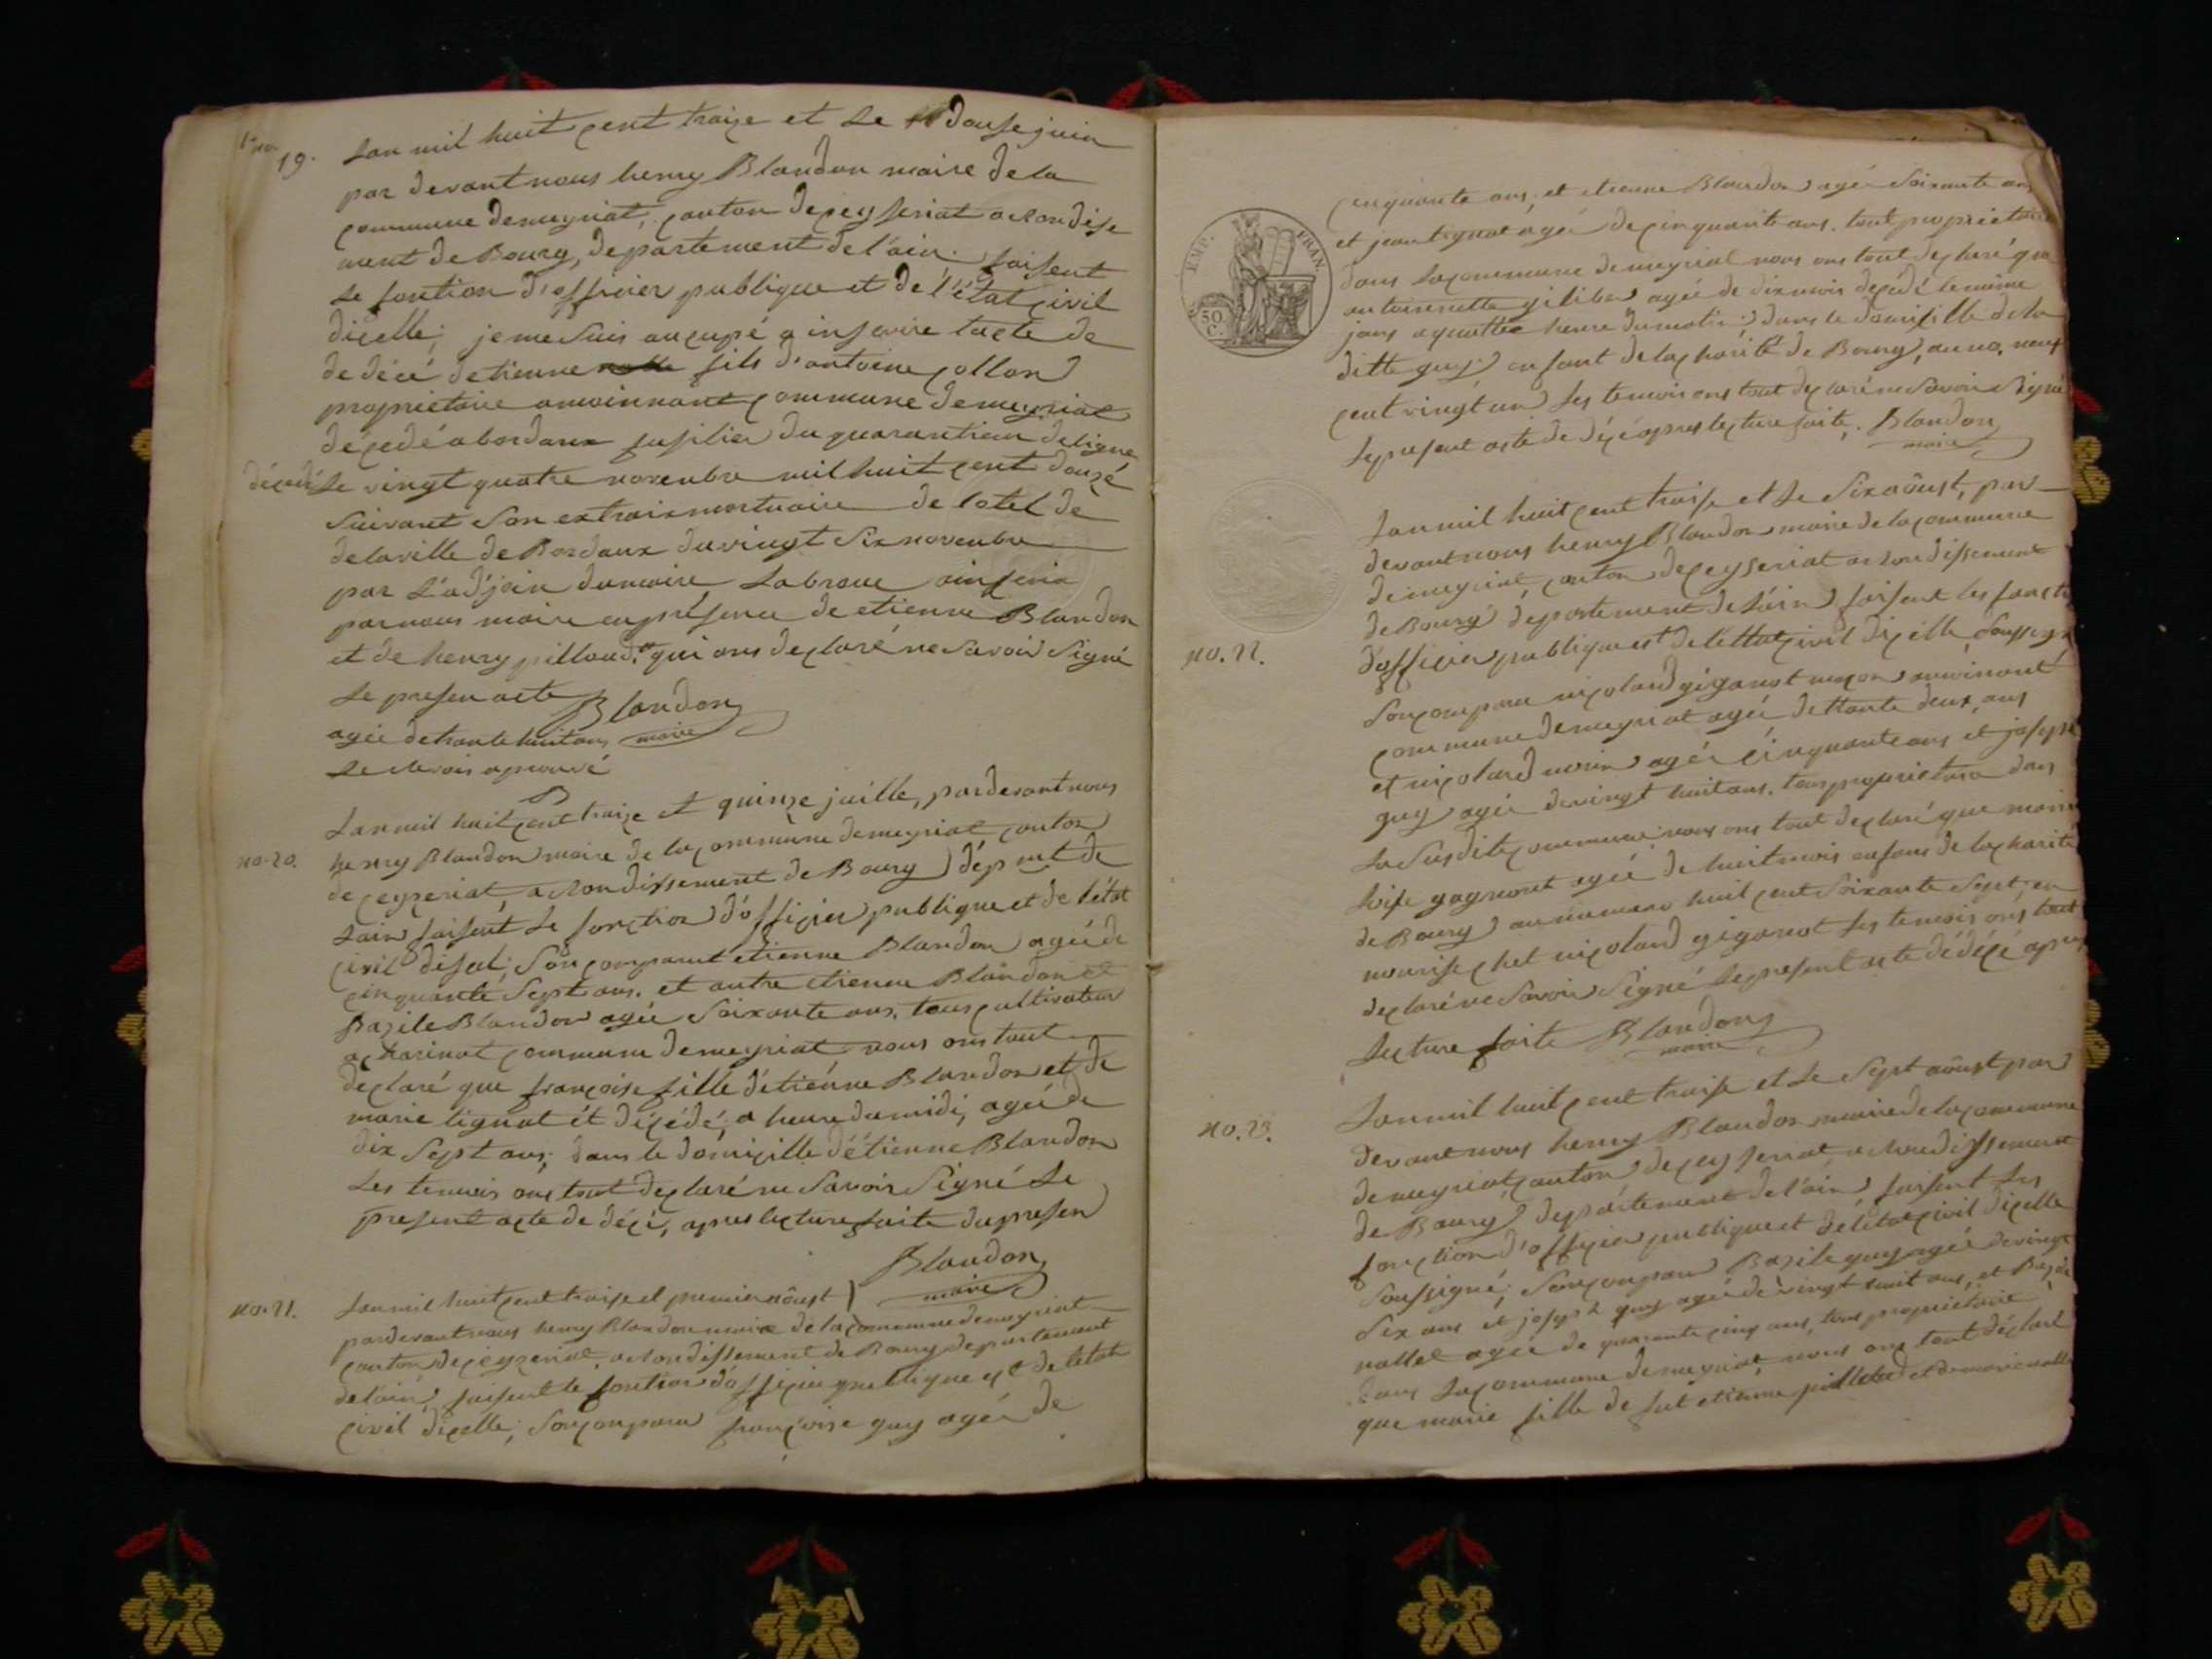 1er no
19. Lan mil huit cent traize et le douse juin
par devant nous henry Blandon maire de la
commune demeyriat, canton deceyseriat arondise
ment de Bourg, departement de l'ain. faisent
le fontion d'officier publique et de l'état civil
dicelle; je me suis aucupé a inscrire lacte de
de décé detienne fils d'antoine collon
proprietaire commune demeyriat
décédé a bordaux fusilier du quarantiem deligne
décédé le vingt quatre novenbre mil huit cent douzé
suivant son extrais mortuaire de lotel de
delaville de Bordaux du vingt six novenbre
par L'adjoin dumaire Labroue
par nous maire enprésence de etienne Blandon
et de henry pilloud. qui ons declaré ne savoir signé
Le presen acte Blandon
agée detrante huit ans maire
Le renvois aprouvé
B
Lan mil huit cent traize et quinze juille, pardevant nous
no. 20. henry Blandon maire de la commune demeyriat canton
de ceyzeriat, arondissement de Bourg dépmt de
Lain faisent le fonction d'officier publique et de l'état
civil diselt; Son comparut etienne Blandon agée de
cinquante sept ans. et autre etienne Blandon et
Bazile Blandon agée soixante ans, tous cultivateur
a charinat commune demeyriat nous ons tout
declaré que françoise fille d'étiénne Blandon et de
marie lignot ét décédé, a heure du midi, agée de
dix sept ans; dans le domicille d'étienne Blandon
Les temois ons tout declaré ne savoir signé le
present acte de décé, apres lecture faite du presen
Blandon
maire
no. 21. Lan mil huit cent traise et premier aôust
pardevant nous henry Blandon maire de la commune demeyriat
canton deceyzeriat arondissement de Bourg departement
delain, faisent le fontion d'officier publique et de letat
civil dicelle; Son conparu françoise guy agée de
cinquante ans, et etienne Blandon agée soixante ans
et jean tignat agée de cinquante ans. tout proprietaire
dans la commune demeyriat nous ons tout declaré que
antoinette agée de dix mois décédé le même
jours a quattre heure du matin dans le domicille de la
ditte guy enfant de la charité de Bourg, au no. neuf
cent vingt un Les temois ons tout declaré ne savoir signé
Le present acte de décé apres lecture faite. Blandon
maire
EMP. FRAN.
50 C.
Lan mil huit cent traise et le six aôust, par
devant nous henry Blandon maire de la commune
demeyriat, canton deceyseriat arondissement
de Bourg departement de l'ain faisent les foncti
no. 22. d'officier publique et de lettat civil dicelle, soussigné
Son conparu nicolard giganot
commune demeyriat agée de trante deux ans
et nicolard morin agée cinquante ans et joseph
guy agée de vingt huit ans. tous proprietaire dans
La susdite commune nous ons tout declaré que marie
loise gagneont agée de huit mois enfans de la charité
de Bourg au numero huit cent soixante sept, en
nourise chet nicolard giganot Les temois ons tout
declaré ne savoir signé le present acte de décé apres
Lecture faite Blandon
maire
Lan mil huit cent traise et le sept aôust par
no. 23. devant nous henry Blandon maire de la commune
demeyriat, canton deceyseriat arondissement
de Bourg departement de l'ain faisent les
fonction d'officier publique et de létat civil dicelle
soussigné; Son conparu Bazile guy agée de vingt
six ans et joseph guy agée de vingt huit ans, et Bazile
nallet agée de quarante cinq ans, tous proprietaire
dans la commune demeyriat, nous ons tout déclaré
que marie fille de fut etienne pilloud et de marie nallet